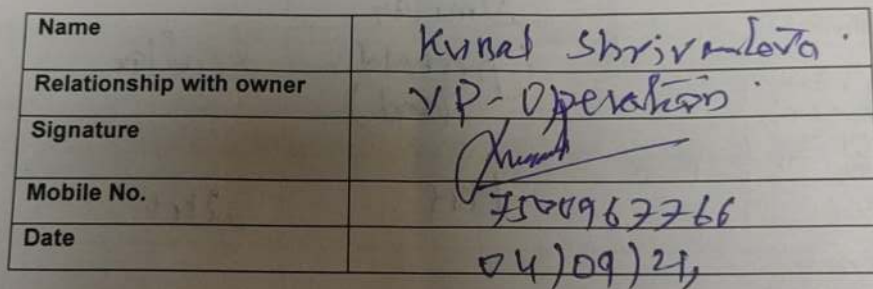 Name Kunal Shrivastava
Relationship with owner VP-Operation
Signature
Mobile No. 7500967766
Date 04/09/21